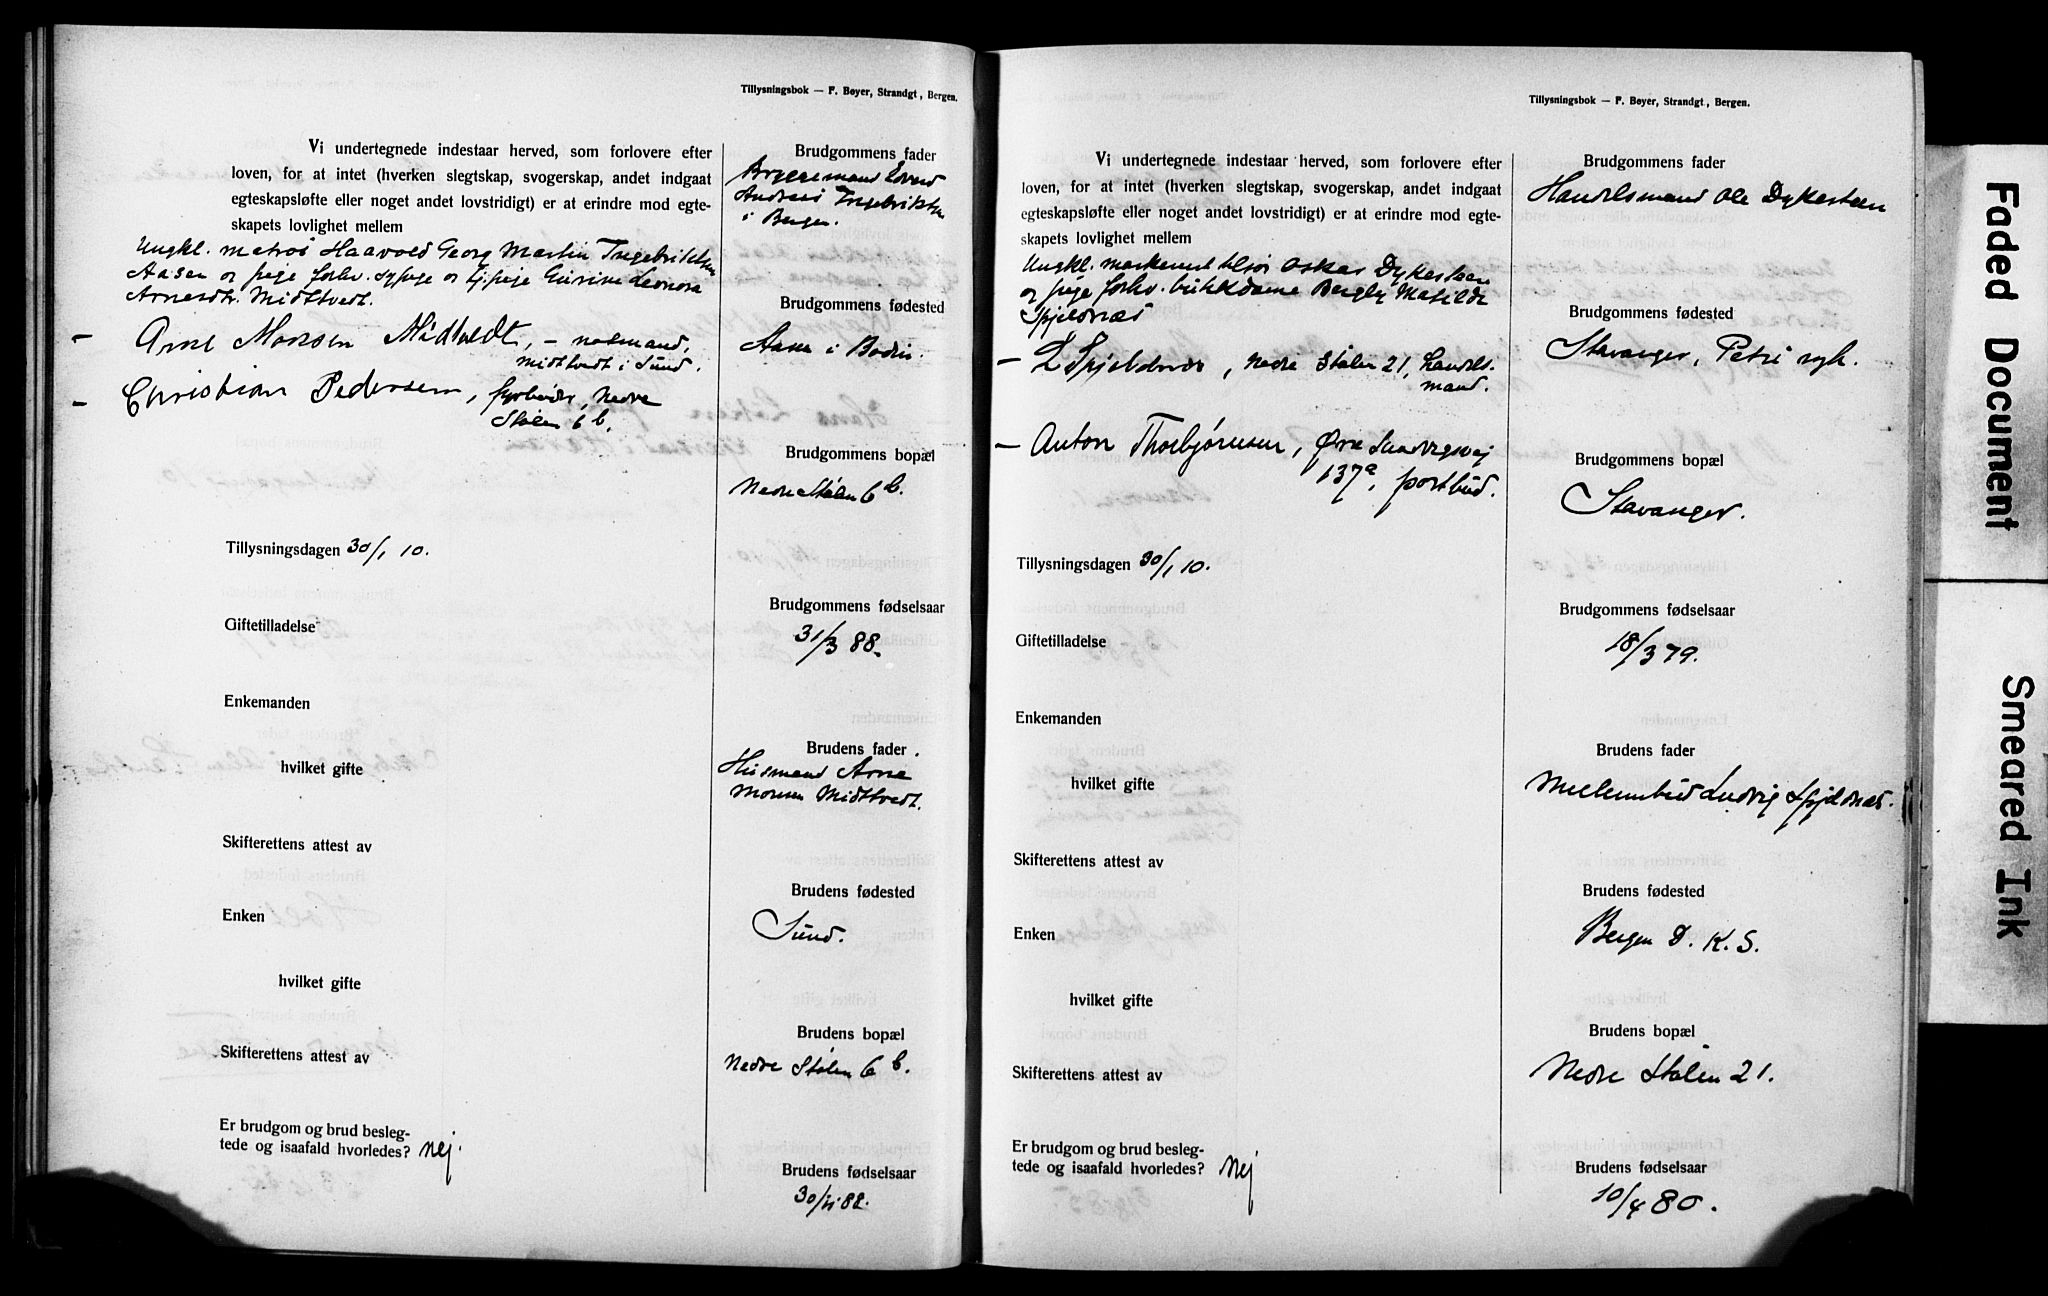 Tillysningsbok — F. Bøyer, Strandgt, Bergen.
Vi undertegnede indestaar herved, som forlovere efter
loven, for at intet (hverken slegtskap, svogerskap, andet indgaat
egteskapsløfte eller noget andet lovstridigt) er at erindre mod egte-
skapets lovlighet mellem
Ungkl. matros Haavold Georg Martin Ingebrigtsen
Aasen og pige forhv. sypige og tj.pige Gurine Leonora
Arnesdtr. Midttvedt.
— Arne Monsen Midtvedt, — nosmand,
Midttvedt i Sund.
— Christian Pedersen, fyrbøder, Nedre
Stølen 6 b.
Tillysningsdagen 30/1 10.
Giftetilladelse
Enkemanden
hvilket gifte
Skifterettens attest av
Enken
hvilket gifte
Skifterettens attest av
Er brudgom og brud besleg-
tede og isaafald hvorledes? Nej.
Brudgommens fader
Andreas Ingebrigtsen
i Bergen.
Brudgommens fødested
Aasen i Bodin.
Brudgommens bopæl
Nedre Stølen 6 b.
Brudgommens fødselsaar
31/3 88.
Brudens fader
Husmand Arne
Monsen Midttvedt.
Brudens fødested
Sund.
Brudens bopæl
Nedre Stølen 6 b.
Brudens fødselsaar
88.
Tillysningsbok — F. Bøyer, Strandgt, Bergen.
Vi undertegnede indestaar herved, som forlovere efter
loven, for at intet (hverken slegtskap, svogerskap, andet indgaat
egteskapsløfte eller noget andet lovstridigt) er at erindre mod egte-
skapets lovlighet mellem
Ungkl. Oskar Dykesteen
og pige forhv. butikdame Bergly Matilde
Spjeldnæs
— L Spjeldnæs, Nedre Stølen 21, handels-
mand.
— Anton Thorbjørnsen, Øvre Sandvigsvej
137a, postbud.
Tillysningsdagen 30/1 10.
Giftetilladelse
Enkemanden
hvilket gifte
Skifterettens attest av
Enken
hvilket gifte
Skifterettens attest av
Er brudgom og brud besleg-
tede og isaafald hvorledes? Nej
Brudgommens fader
Handelsmand Ole Dykesteen
Brudgommens fødested
Stavanger, Petri
Brudgommens bopæl
Stavanger.
Brudgommens fødselsaar
18/3 79.
Brudens fader
Ludvig Spjeldnæs.
Brudens fødested
Bergen D. K. S.
Brudens bopæl
Nedre Stølen 21.
Brudens fødselsaar
10/4 80.
Faded Document
Smeared Ink